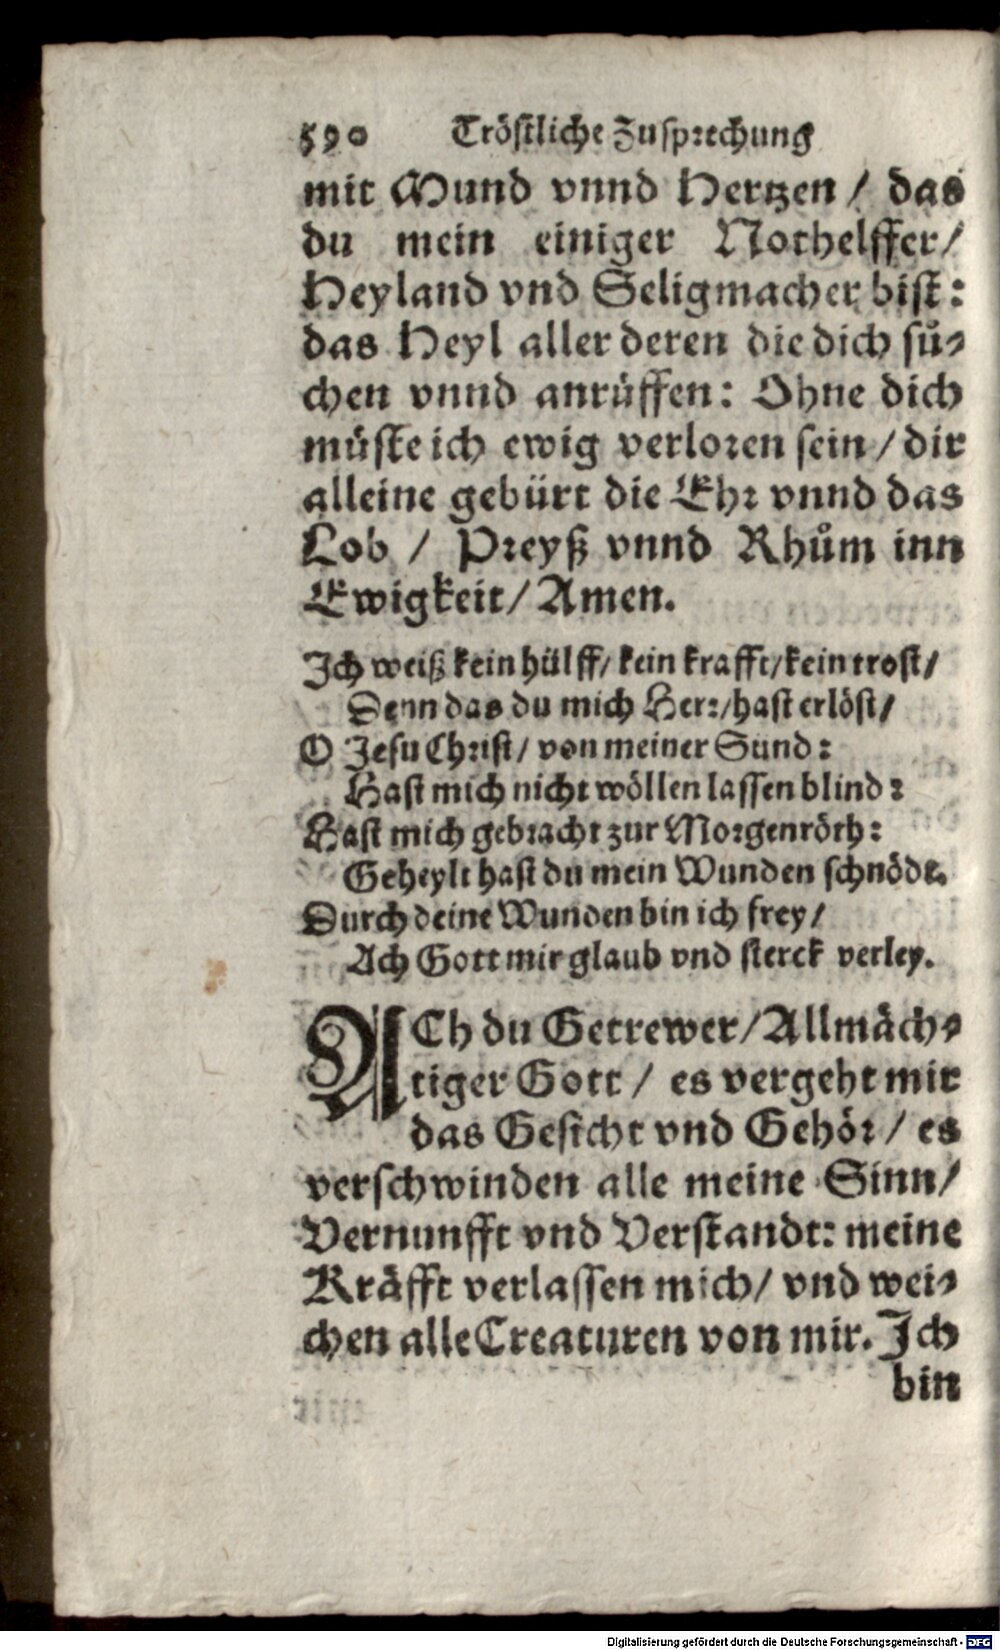 590 Tröstliche Zusprechung
mit Mund vnnd Hertzen / das
du mein einiger Nothelffer /
Heyland vnd Seligmacher bist:
das Heyl aller deren die dich sů-
chen vnnd anrüffen: Ohne dich
müste ich ewig verloren sein / dir
alleine gebürt die Ehr vnnd das
Lob / Preyß vnnd Rhům inn
Ewigkeit / Amen.
Ich weiß kein hülff / kein krafft / kein trost /
Denn das du mich Herr / hast erlöst /
O Jesu Christ / von meiner Sund:
Hast mich nicht wöllen lassen blind:
Hast mich gebracht zur Morgenröth:
Geheylt hast du mein Wunden schnöde.
Durch deine Wunden bin ich frey /
Ach Gott mir glaub vnd sterck verley.
ACh du Getrewer / Allmäch-
tiger Gott / es vergeht mir
das Gesicht vnd Gehör / es
verschwinden alle meine Sinn /
Vernunfft vnd Verstandt: meine
Kräfft verlassen mich / vnd wei-
chen alle Creaturen von mir. Ich
bin
Digitalisierung gefördert durch die Deutsche Forschungsgemeinschaft - DFG